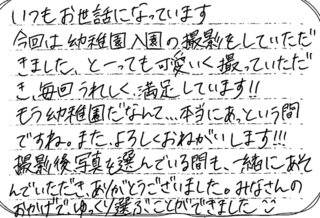 いつもお世話になっています
今回は幼稚園入園の撮影をしていただ
きました、とーっても可愛いく撮っていただ
き、毎回うれしく、満足しています!!
もう幼稚園だなんて…本当にあっという間
ですね。また、よろしくおねがいします!!!
撮影後、写真を選んでいる間も、一緒にあそ
んでいただき、ありがとうございました。みなさんの
おかげで、ゆっくり選ぶことができました